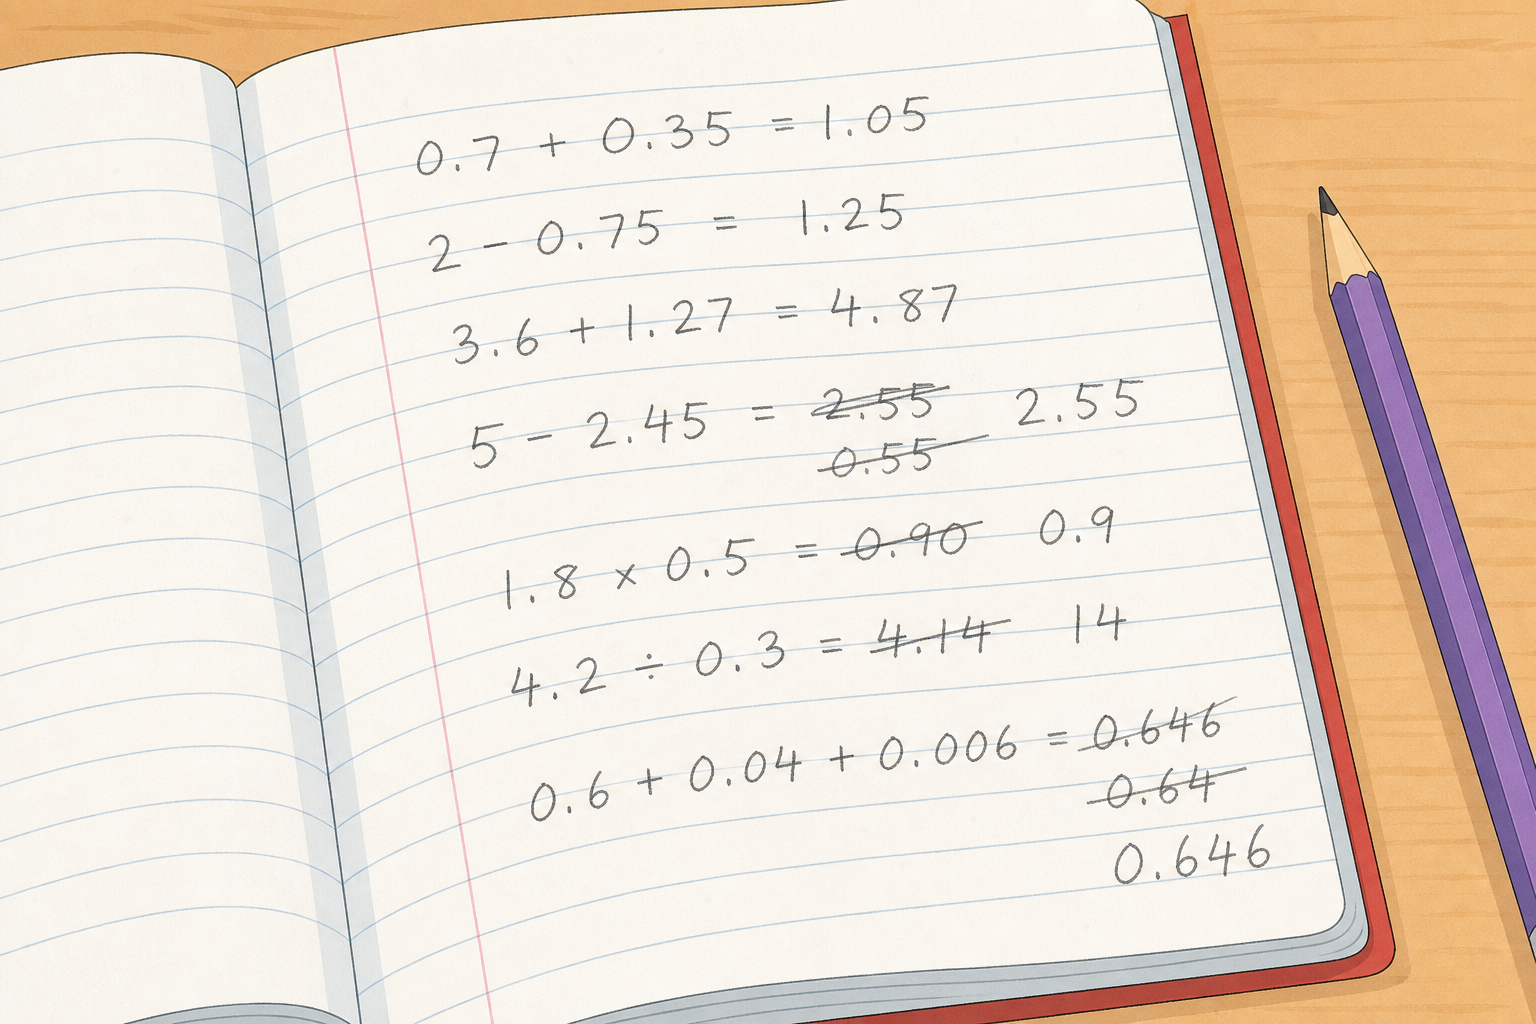 0.7 + 0.35 = 1.05
2 - 0.75 = 1.25
3.6 + 1.27 = 4.87
5 - 2.45 = 2.55 2.55
0.55
1.8 × 0.5 = 0.90 0.9
4.2 ÷ 0.3 = 4.14 14
0.6 + 0.04 + 0.006 = 0.646
0.64
0.646